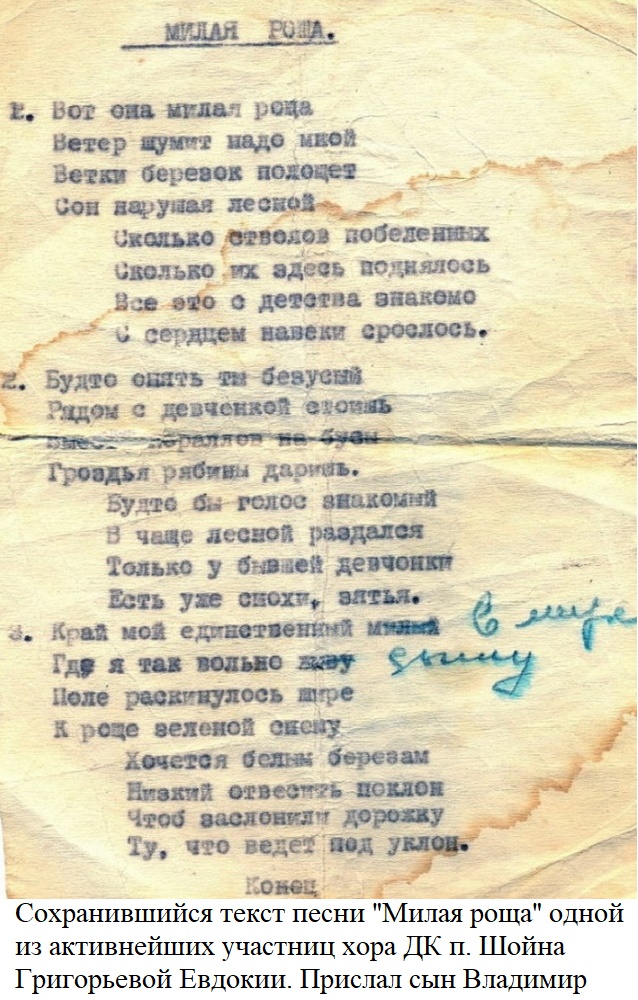 МИЛАЯ РОЩА.
1. Вот она милая роща
Ветер шумит надо мной
Ветки березок полощет
Сон нарушая лесной
Сколько стволов побеленных
Сколько их здесь поднялось
Все это с детства знакомо
С сердцем навеки срослось.
2. Будто опять ты безусый
Рядом с девченкой стоишь
кораллов на бусы
Гроздья рябины даришь.
Будто бы голос знакомый
В чаще лесной раздался
Только у бывшей девчонки
Есть уже снохи, зятья.
3. Край мой единственный милый В мире
Где я так вольно живу дышу
Поле раскинулось шире
К роще зеленой спешу
Хочется белым березам
Низкий отвесить поклон
Чтоб заслонили дорожку
Ту, что ведет под уклон.
Конец
Сохранившийся текст песни "Милая роща" одной
из активнейших участниц хора ДК п. Шойна
Григорьевой Евдокии. Прислал сын Владимир